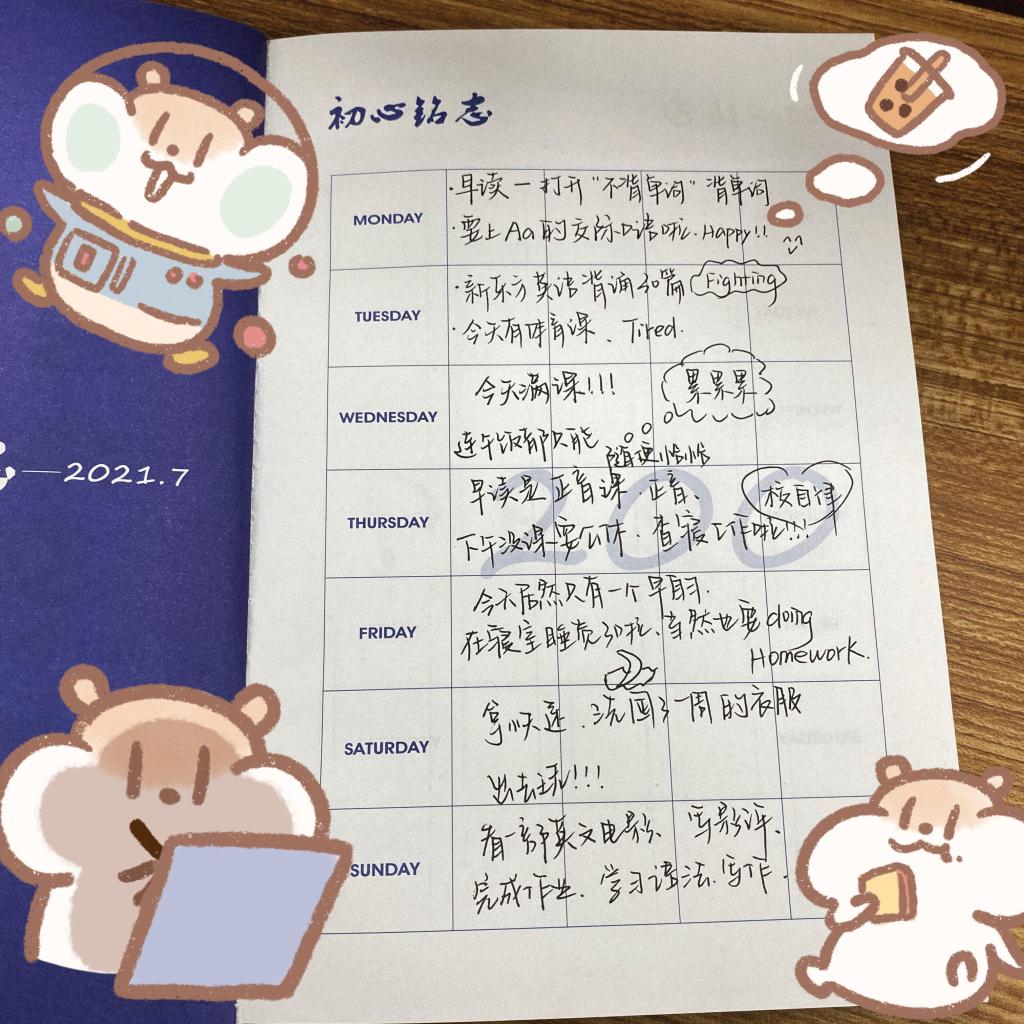 初心铭志
—2021.7
200
MONDAY
·早读一打开“不背单词”背单词
·要上Aa的交际口语啦. Happy!!
TUESDAY
·新东方英语背诵30篇 Fighting
·今天有体育课. Tired.
WEDNESDAY
今天满课!!! 累累累
连午饭都只能随便恰恰
THURSDAY
早读是正音课. 正音、 被自律
下午没课要公休. 查寝工作啦!!!
FRIDAY
今天居然只有一个早自习.
在寝室睡觉 当然也要doing
Homework.
SATURDAY
拿快递. 洗 一周的衣服
出去玩!!!
SUNDAY
看一部英文电影、写影评、
完成作业. 学习语法.写作.